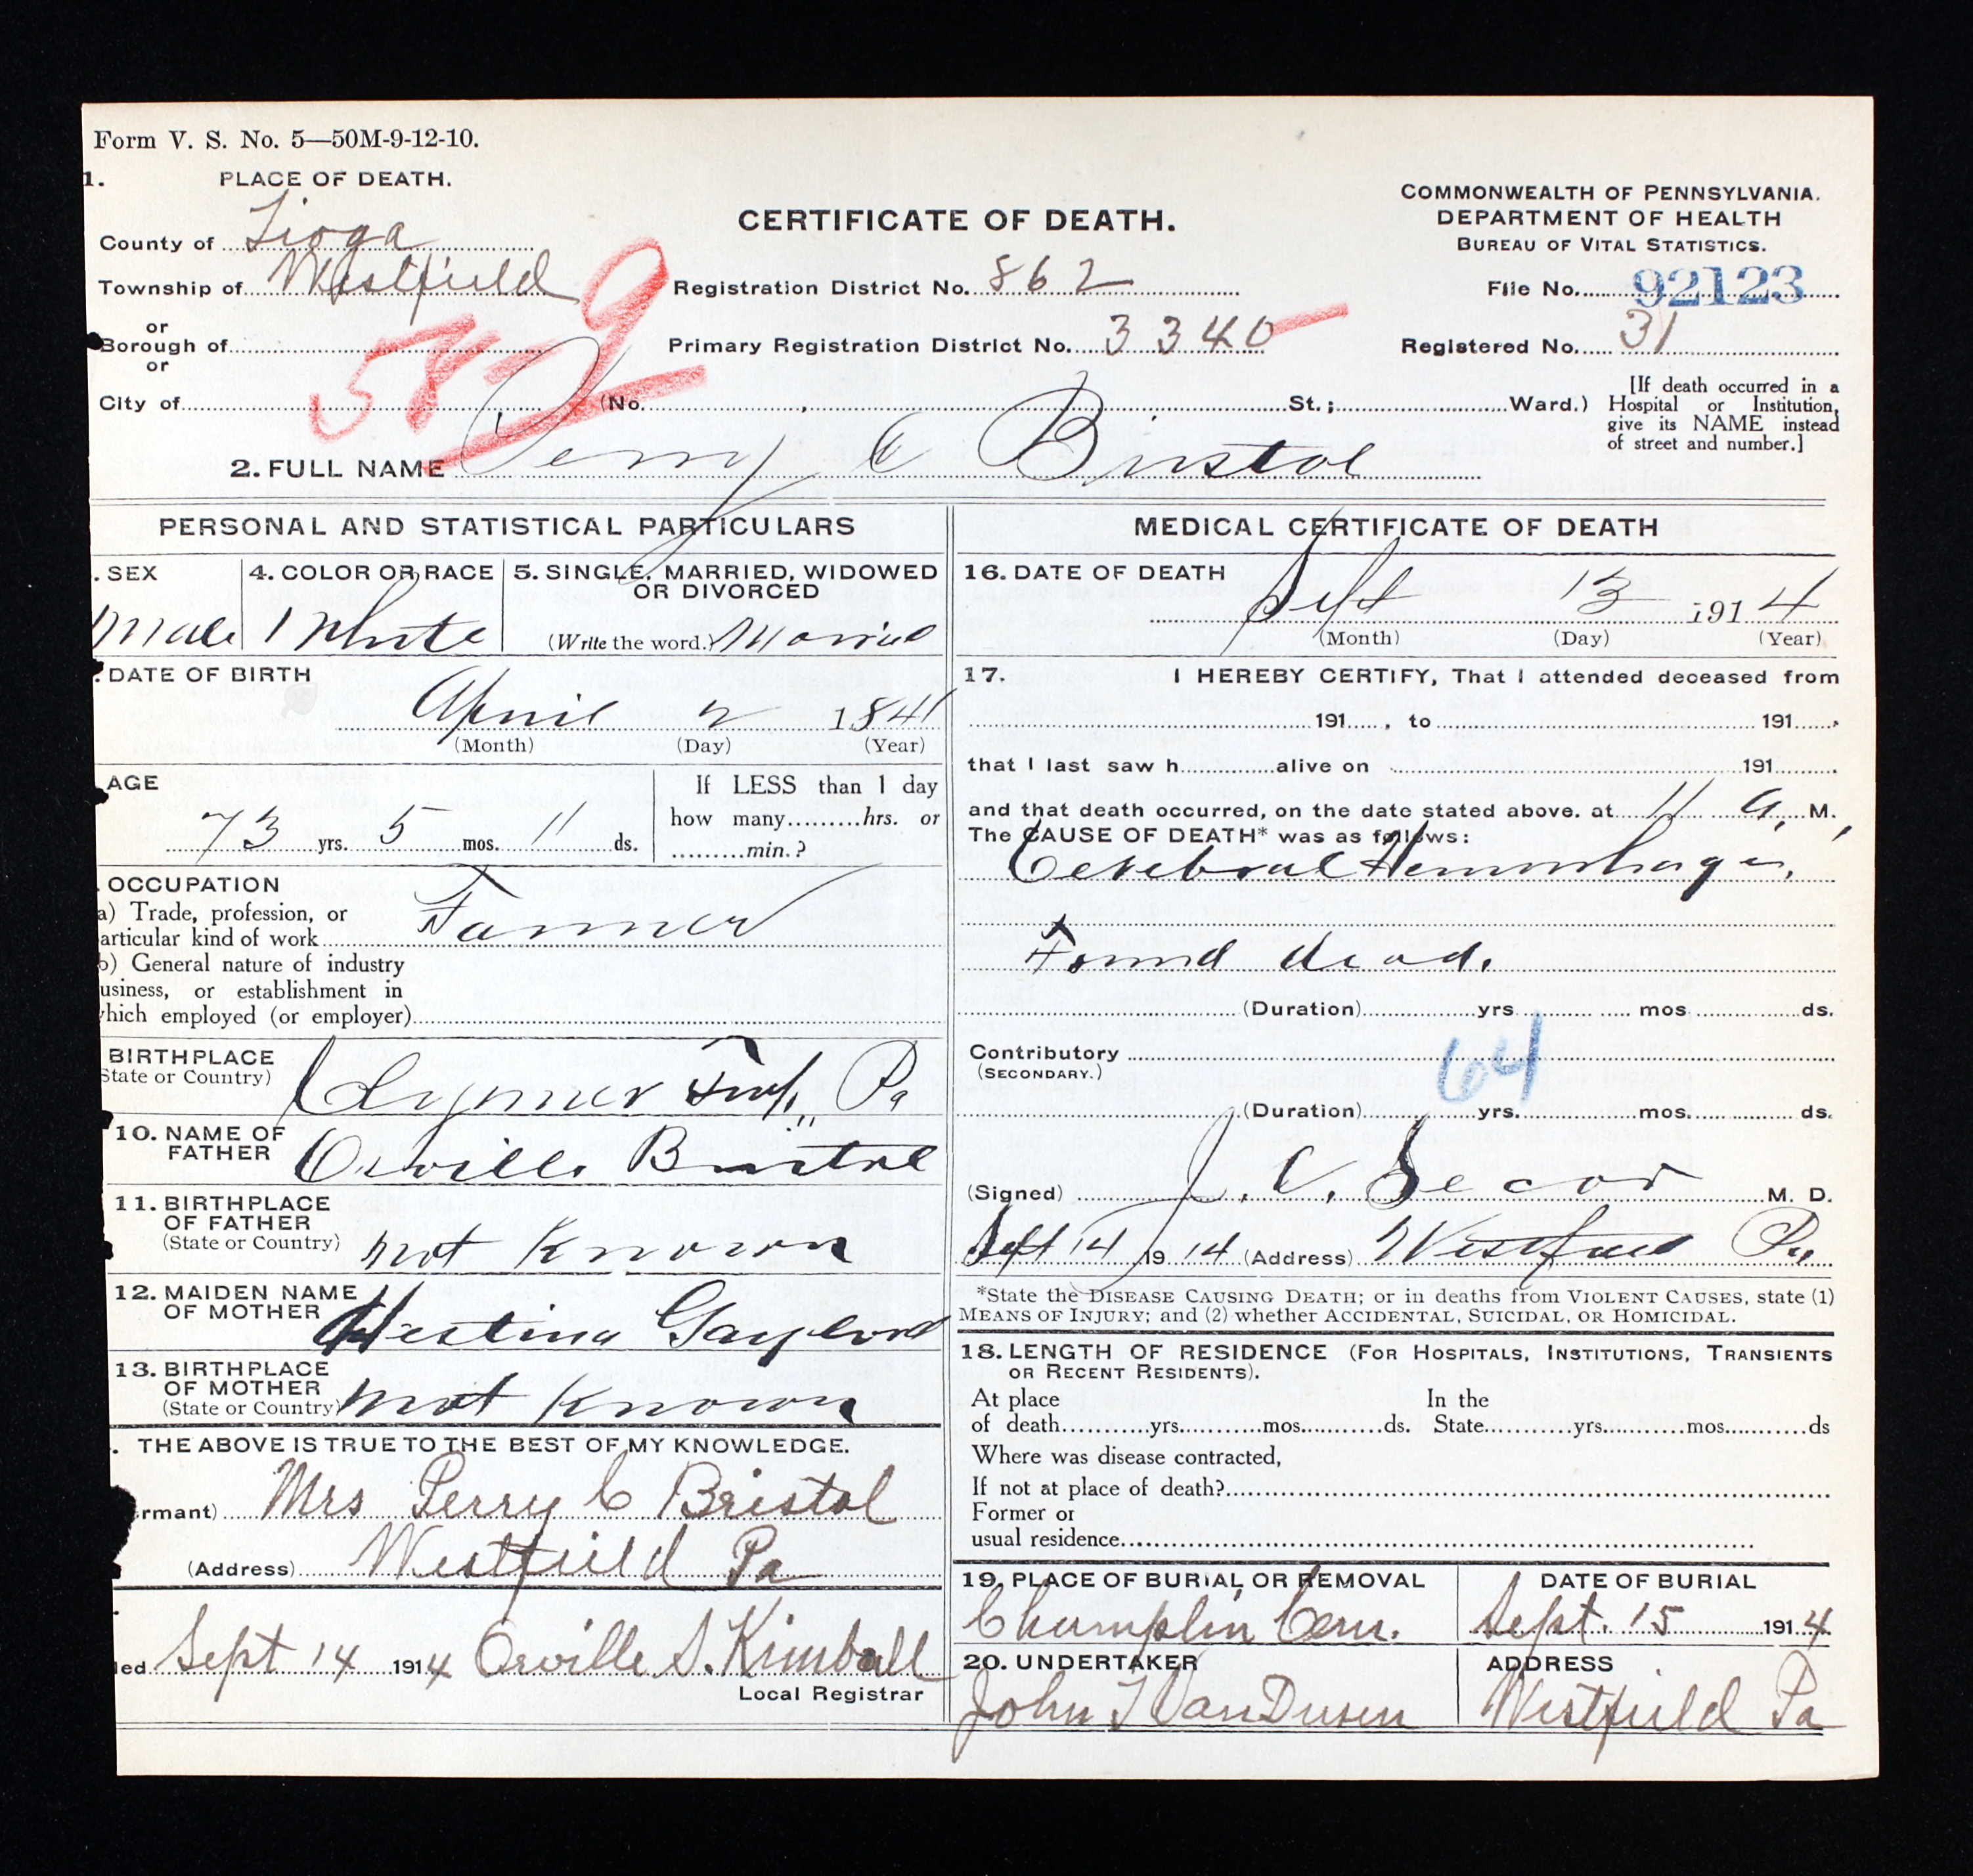 Form V. S. No. 5—50M-9-12-10.
1. PLACE OF DEATH.
County of Tioga
Township of Westfield
or
Borough of
or
City of
(No. , St.; Ward.)
COMMONWEALTH OF PENNSYLVANIA.
DEPARTMENT OF HEALTH
BUREAU OF VITAL STATISTICS.
CERTIFICATE OF DEATH.
Registration District No. 862
File No. 92123
Primary Registration District No. 3340
Registered No. 31
[If death occurred in a
Hospital or Institution,
give its NAME instead
of street and number.]
2. FULL NAME Perry C Bristol
PERSONAL AND STATISTICAL PARTICULARS
. SEX
Male
4. COLOR OR RACE
White
5. SINGLE, MARRIED, WIDOWED
OR DIVORCED
(Write the word.) Married
DATE OF BIRTH
April 2 1841
(Month) (Day) (Year)
AGE
73 yrs. 5 mos. 11 ds.
If LESS than 1 day
how many hrs. or
min.?
OCCUPATION
a) Trade, profession, or
articular kind of work Farmer
b) General nature of industry
usiness, or establishment in
which employed (or employer)
BIRTHPLACE
State or Country) Clymer Twp., Pa
10. NAME OF
FATHER Orville Bristol
11. BIRTHPLACE
OF FATHER
(State or Country) not Known
12. MAIDEN NAME
OF MOTHER Hestina Gaylord
13. BIRTHPLACE
OF MOTHER
(State or Country) not Known
. THE ABOVE IS TRUE TO THE BEST OF MY KNOWLEDGE.
rmant) Mrs Perry C Bristol
(Address) Westfield Pa
led Sept 14 1914 Orville S. Kimball
Local Registrar
MEDICAL CERTIFICATE OF DEATH
16. DATE OF DEATH
Sept 13 1914
(Month) (Day) (Year)
17. I HEREBY CERTIFY, That I attended deceased from
191 , to 191 .
that I last saw h alive on 191 .
and that death occurred, on the date stated above, at 11 a. M.
The CAUSE OF DEATH* was as follows:
Cerebral Hemorhage.
Found dead.
(Duration) yrs. mos. ds.
Contributory
(SECONDARY.)
64
(Duration) yrs. mos. ds.
(Signed) J. V. Secor M. D.
Sept 14 1914 (Address) Westfield Pa
*State the DISEASE CAUSING DEATH; or in deaths from VIOLENT CAUSES, state (1)
MEANS OF INJURY; and (2) whether ACCIDENTAL, SUICIDAL, OR HOMICIDAL.
18. LENGTH OF RESIDENCE (FOR HOSPITALS, INSTITUTIONS, TRANSIENTS
OR RECENT RESIDENTS).
At place In the
of death yrs. mos. ds. State yrs. mos. ds
Where was disease contracted,
If not at place of death?
Former or
usual residence
19. PLACE OF BURIAL OR REMOVAL
Champlin Cem.
DATE OF BURIAL
Sept. 15 1914
20. UNDERTAKER
John T VanDusen
ADDRESS
Westfield Pa